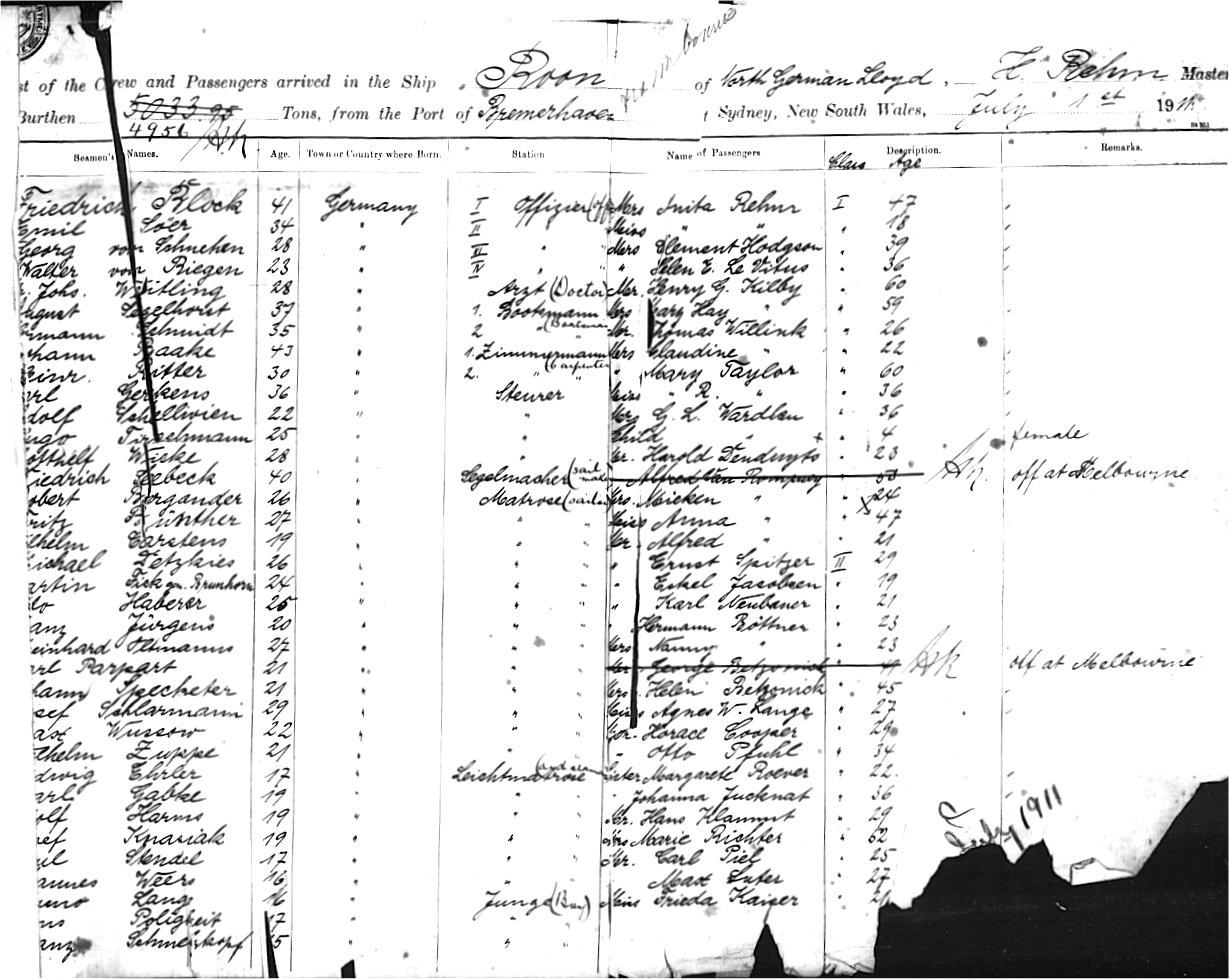 st of the Crew and Passengers arrived in the Ship Roon of North German Lloyd, H. Rehm Master
Burthen 5033.95 Tons, from the Port of Bremerhaven Sydney, New South Wales, July 1st 1911
4956
Seamen's Names. Age. Town or Country where Born. Station Name of Passengers Description. Remarks.
Class Age
Friedrich Block 41 Germany I Offizier Mrs Anita Rehm I 47
Emil Söer 34 " II " Miss " " 18
Georg von Schnehen 28 " III " " Mrs Clement Hodgson " 39
Walter von Riegen 23 " IV " " " Helen E. Le Vitus " 36
Johs. Weitling 28 " Arzt (Doctor) Mr. Henry G. Kilby " 60
August Segelhorst 37 " 1. Bootsmann Mrs Mary Hay " " 59
rmann Schmidt 35 " 2 " (Boatsman Mr. Thomas Willink " 26
ohann Baake 43 " 1. Zimmermann Mrs Claudine " " 22
Hinr. Ritter 30 " 2. " (Carpenter " Mary Taylor " 60
arl Gerkens 36 " Steurer Miss " R. " " 36
dolf Schellwien 22 " " Mrs G. L. Wardlen " 36
ugo Tirschmann 25 " " Child " 4 female
otthelf Wiske 28 " " Mr. Harold Denduyts " 23
Friedrich Seebeck 40 " Segelmacher (sail make Alfred Van Rompaey " 53 off at Melbourne
obert Bergander 26 " Matrose (sailor Mrs. Mieken " 24
ritz Bünther 27 " " " Miss Anna " " 47
ilhelm Carstens 19 " " " Mr. Alfred " " 21
ichael Tetzkies 26 " " " " Ernst Spitzer II 29
artin Fick gen. Brunhorn 24 " " " " Eskel Jacobsen " 19
do Haberer 25 " " " " Karl Neubauer " 21
anz Jürgens 20 " " " " Hermann Böttner " 23
einhard Oltmanns 27 " " " Mrs Nanny " " 23
arl Parpart 21 " " " Mr George Betzonick " 49 off at Melbourne
hann Specheter 21 " " " Mrs. Helen Betzonick " 45
osef Schlarmann 29 " " " Miss Agnes W. Lange " 27
ax Wussow 22 " " " Mr. Horace Cooper " 29
ilhelm Zuppe 21 " " " " Otto Pfuhl " 34
udwig Ehrler 17 " Leichtmatrose Margarete Roever " 22
arl Gabke 19 " " " " Johanna Jucknat " 36
olf Harms 19 " " " Mr. Hans Klammt " 29
sef Knasiak 19 " " " Mrs Marie Richter " 52
ul Stendel 17 " " " Mr. Carl Piel " 25
annes Weers 16 " " Max Luter " 27
uno Lang 16 " Junge (Boy) Miss Frieda Kaiser "
ns Poligkeit 17 " "
anz Schneiskopf 15 " "
July 1911